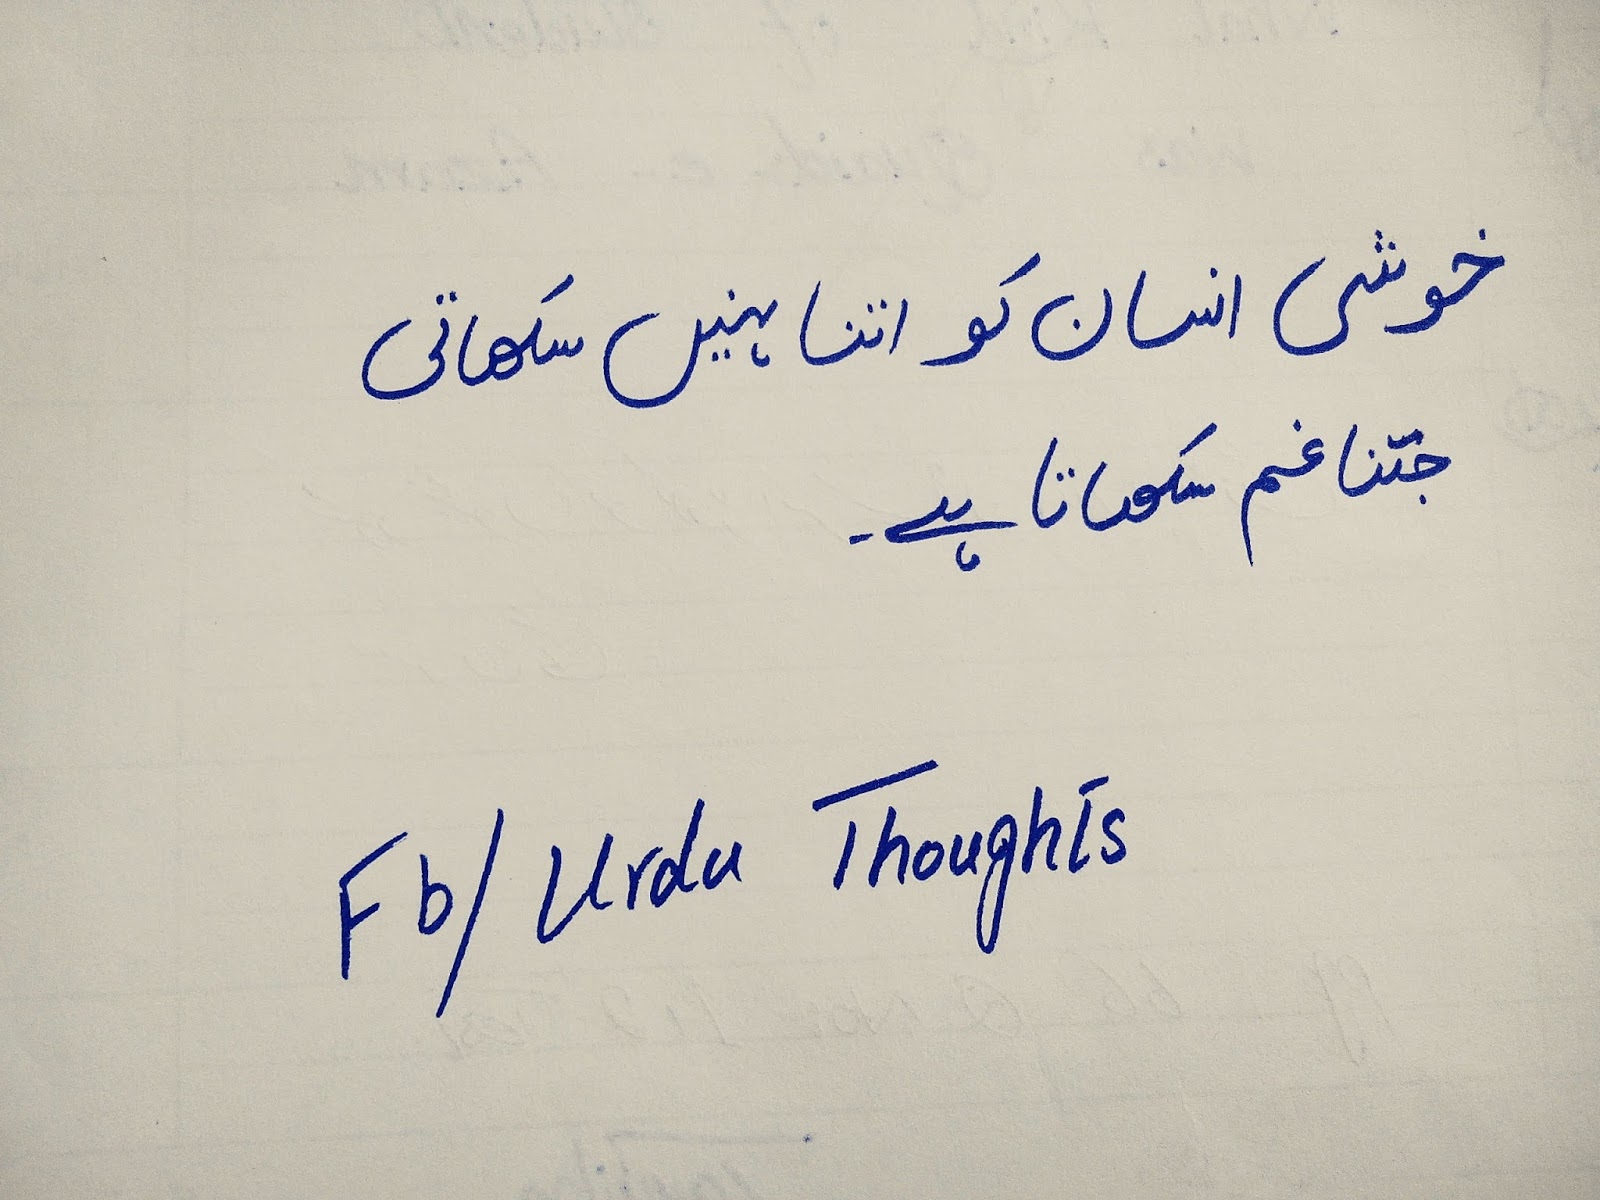 خوشی انسان کو اتنا نہیں سکھاتی
جتنا غم سکھاتا ہے۔
Fb/ Urdu Thoughts